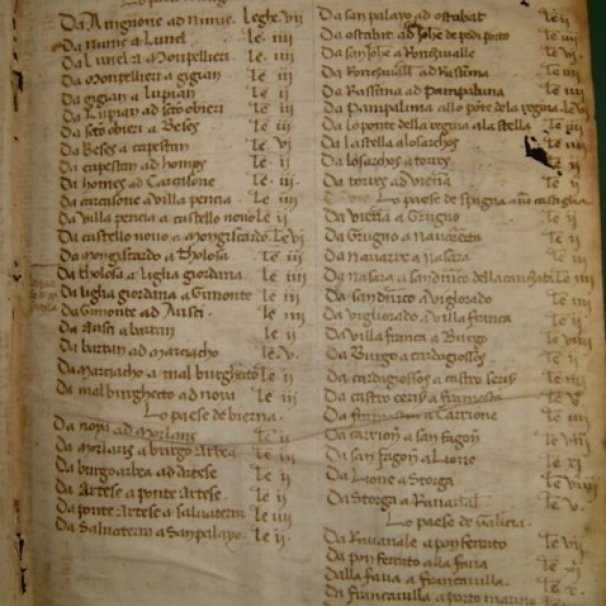 Da Avignone ad nimis. leghe. vij
Da nime a Lunel le. iiij
Da Lunel a Monpellieri le. iiij
Da Monpellieri a gigian le. iij
Da gigian a Lupian le. ij
Da Lupian ad obieri le. ij
Da obieri a Beses le iij
Da Beses a capestan le. vj
Da capestan ad homps le. ij
Da homes ad Carcasone le. iij.
Da carcasone a villa pencia le. iiij
Da villa pencia a castello novo le ij
Da castello novo a Mongiscardo. le vj
Da Mongiscardo a tholosa le iij
Da tholosa a liglia giordana le iiij
Da liglia giordana a Gimonte le iij
Da Gimonte ad Ausci. le iiij
Da Ausci a barran le ij
Da barran ad Marciacho le. v.
Da Marciacho a malburghetto le ij
Da malburghetto ad novi le iij
Lo paese de bierna.
Da novi ad Morlans le ij
Da Morlans a burgo le
Da burgo ad artese le ij
Da Artese a ponte Artese. le ij
Da ponte Artese a salvaterra le iiij
Da Salvaterra a Sanpalayo. le ij.
Da san palayo ad ostabat le ij
Da ostabat ad de pedi porto le iiij
Da a Roncivalle le vj.
Da Roncivall ad Rassima le iiij
Da Rassima ad Pampaluna le iiij
Da Pampaluna allo ponte dela regina le
Da lo ponte della regina ala stella le iiij
Da lastella alosarchos le iiij
Da losarchos a torres le ij
Da torres ad viena le ij
Lo paese de spagna castiglia
Da viena a Grugno le ij
Da Grugno a le ij
Da Navarre a Nasara le iij
Da Nasara a della le iiij
Da a viglorado le iiij
Da vigliorado a villa franca le ij
Da villa franca a Burgo le viij
Da Burgo a cardagiossos le ij
Da cardigiossos a castro seris le iiij
Da castro ceris a fromesta le v
Da a Carrione le iiij
Da carrion a san fagon le viij
Da san fagon a Lione le xj
Da Lione a Storga le viiij
Da Storga a Ravanal le v.
Lo paese de Galicia.
Da Ravanale a ponferrato le vij
Da ponferrato alla fava le xj
Dalla fava a francavilla le x.
Da francavilla a porto marino